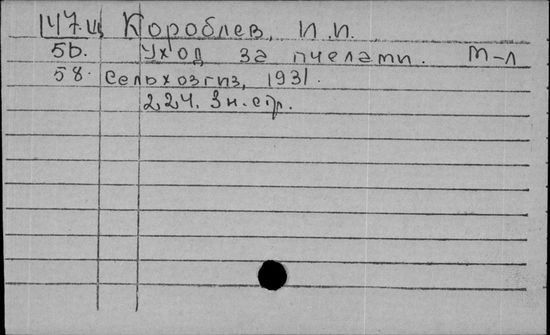 147.ц Кораблев, И.И.
5б. Уход за пчелами. М-Л
58. Сельхозгиз, 1931.
224. 3 н. стр.